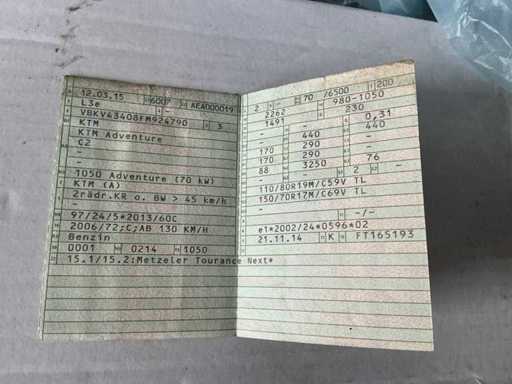 12.03.15 6007 AEA000019
L3e -
VBKV43408FM924790 3
KTM
KTM Adventure
C2
-
-
1050 Adventure (70 kW)
KTM (A)
2rädr.KR o. BW > 45 km/h
-
97/24/5*2013/60C
2006/72;C;AB 130 KM/H
Benzin
0001 0214 1050
15.1/15.2:Metzeler Tourance Next*
2 - 70 /6500 200
2262 980-1050
1491 230
- 0,31
- 440 440
- 290 -
170 290 -
170 3250 76
88 - 2 -
110/80R19M/C59V TL
150/70R17M/C69V TL
-
- -/-
e1*2002/24*0596*02
21.11.14 K FT165193